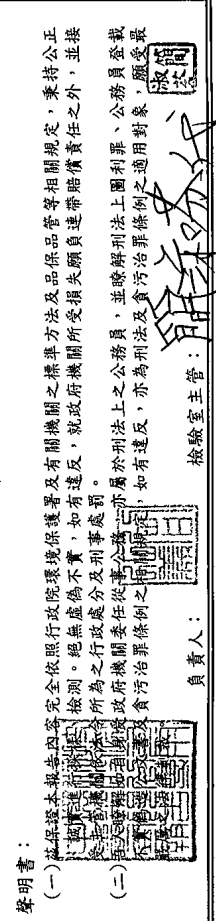 聲明書：
(一)茲保證本報告內容完全依照行政院環境保護署及有關機關之標準方法及品保品管等相關規定，秉持公正
、誠實進行採樣檢測。絕無虛偽不實，如有違反，就政府機關所受損失願負連帶賠償責任之外，並接
受主管機關依法令所為之行政處分及刑事處罰。
(二)吾人瞭解如自身受政府機關委任從事公務，亦屬於刑法上之公務員，並瞭解刑法上圖利罪、公務員登載
不實偽造公文書及貪污治罪條例之相關規定，如有違反，亦為刑法及貪污治罪條例之適用對象，願受最
負責人：
檢驗室主管：